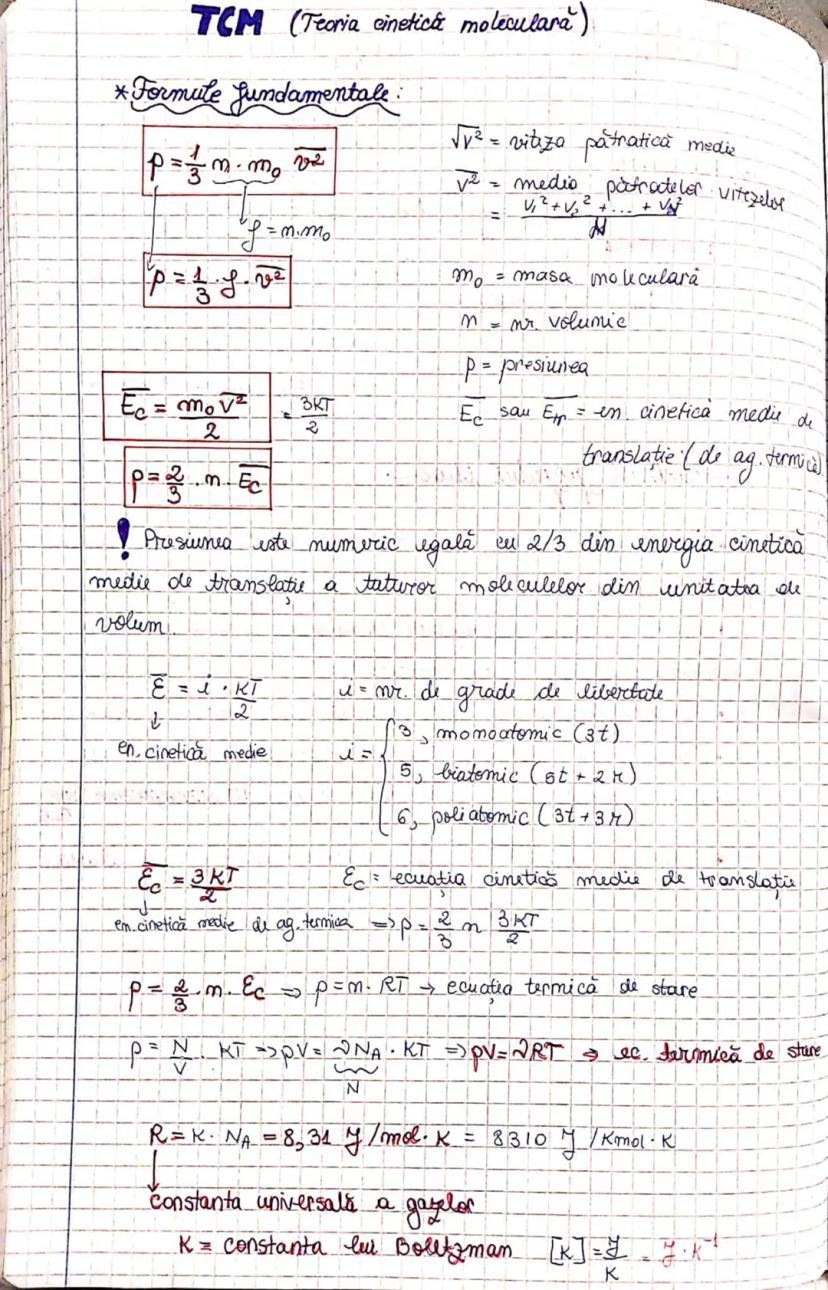 TCM (Teoria cinetică moleculară)
* Formule fundamentale:
p = 1/3 n · m₀ v̅²̅
√v̅²̅ = viteza pătratică medie
v̅²̅ = media pătratelor vitezelor
= (v₁² + v₂² + ... + v_N²)/N
ρ = n·m₀
p = 1/3 · ρ · v̅²̅
m₀ = masa moleculară
n = nr. volumic
p = presiunea
E̅c̅ = m₀ v̅²̅/2 = 3KT/2
E̅c̅ sau E̅tr̅ = en. cinetică medie de
translație (de ag. termică)
p = 2/3 · n · E̅c̅
! Presiunea este numeric egală cu 2/3 din energia cinetică
medie de translație a tuturor moleculelor din unitatea de
volum.
ε̅ = i · KT/2    i = nr. de grade de libertate
↓
en. cinetică medie
i = { 3, monoatomic (3t)
5, biatomic (3t + 2r)
6, poliatomic (3t + 3r)
ε̅c̅ = 3KT/2    εc = ecuația cinetică medie de translație
↓
en. cinetică medie de ag. termica => p = 2/3 n 3KT/2
p = 2/3 · n · εc => p = n · RT → ecuația termică de stare
p = N/V · KT => pV = νN_A · KT => pV = νRT → ec. termică de stare
N
R = K · N_A = 8,31 J/mol·K = 8310 J/Kmol·K
↓
constanta universală a gazelor
K = constanta lui Bolltzman [K] = J/K = J·K⁻¹